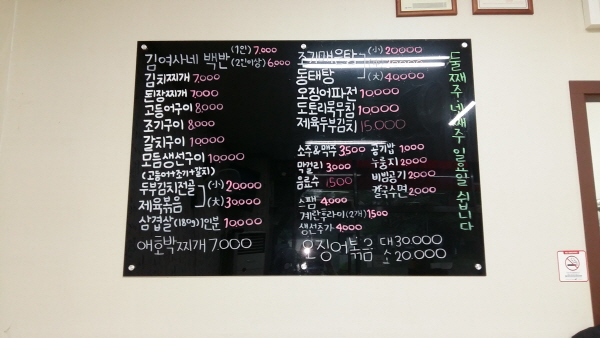 김여사네 백반 (1인) 7,000
(2인이상) 6,000
김치찌개 7,000
된장찌개 7,000
고등어구이 8,000
조기구이 8,000
갈치구이 10,000
모듬생선구이 10,000
(고등어+조기+갈치)
두부김치전골 (小) 20,000
제육볶음 (大) 30,000
삼겹살 (180g) 1인분 10,000
애호박찌개 7,000
조기매운탕 (小) 20,000
동태탕 (大) 40,000
오징어파전 10,000
도토리묵무침 10,000
제육두부김치 15,000
소주&맥주 3500
막걸리 3000
음료수 1500
스팸 4000
계란후라이(2개) 1500
생선추가 4,000
공기밥 1000
누룽지 2000
비빔공기 2000
칼국수면 2000
오징어볶음 대 30,000
소 20,000
둘째주 네째주 일요일 쉽니다